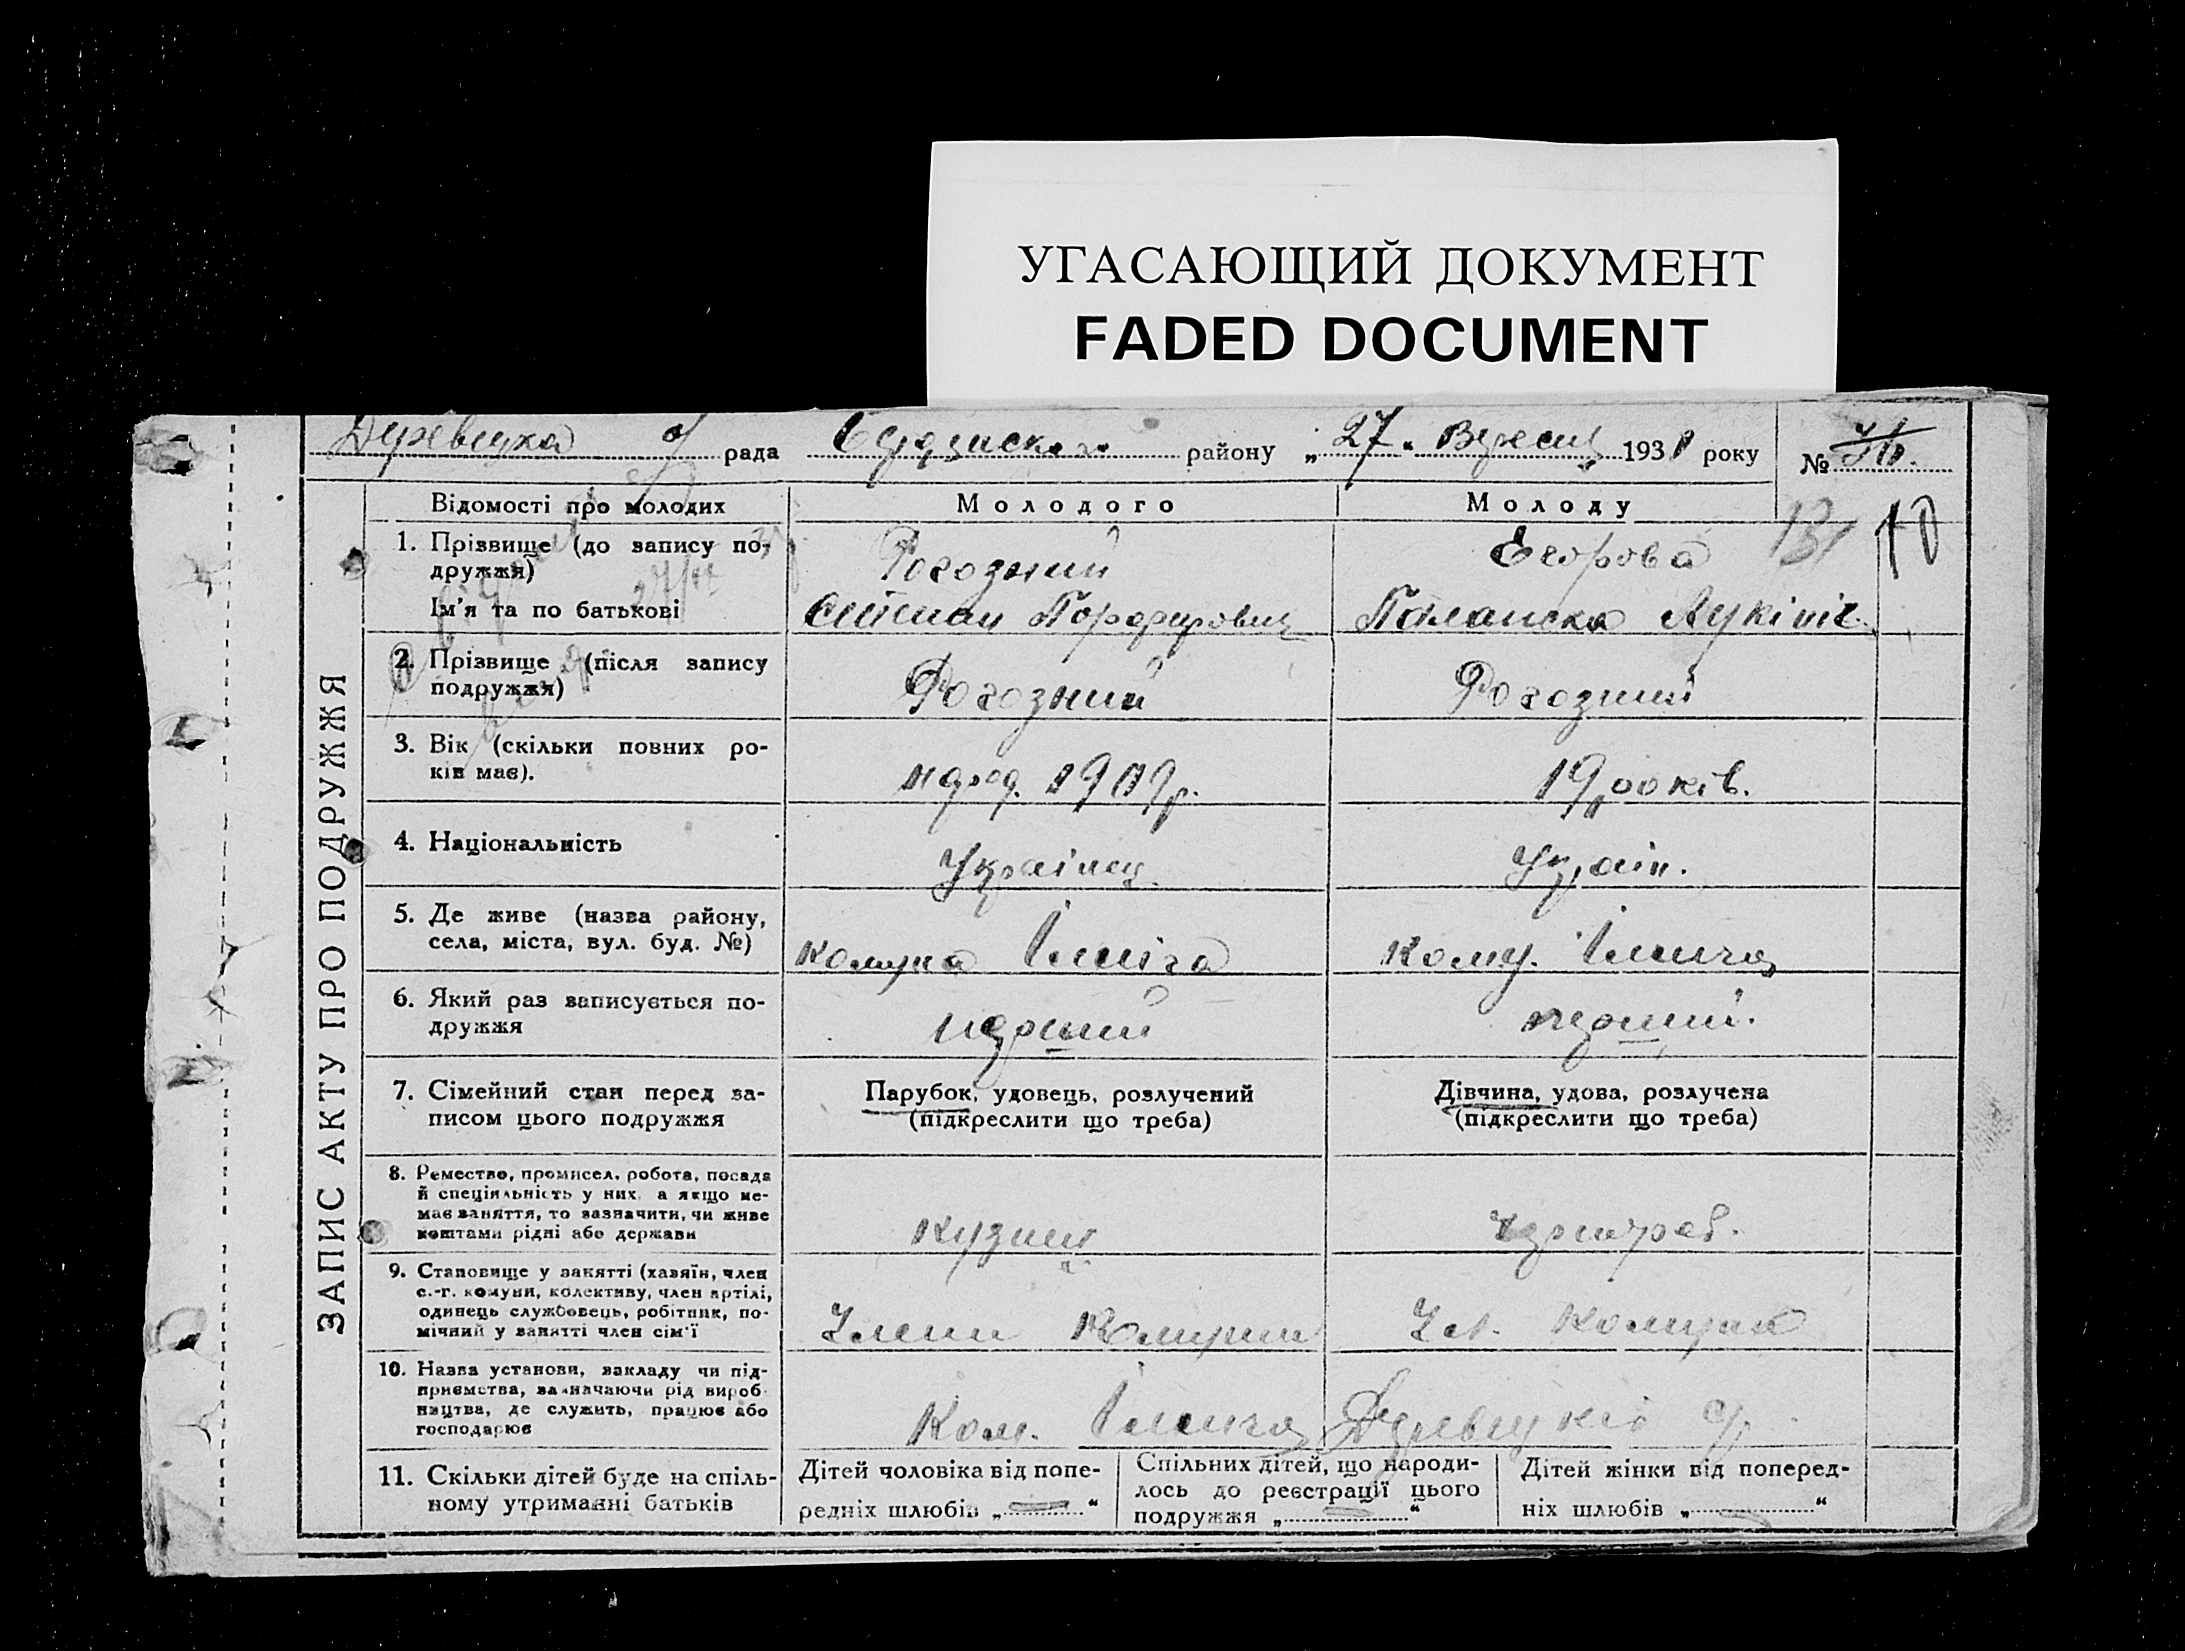 УГАСАЮЩИЙ ДОКУМЕНТ
FADED DOCUMENT
рада району „27“ Вересня 1931 року №
ЗАПИС АКТУ ПРО ПОДРУЖЖЯ
Відомості про молодих Молодого Молоду
131 10
1. Прізвище (до запису по-
дружжя) Рогозний Егорова
Ім'я та по батькові Степан Порфирович Палажка Лукінічна
2. Прізвище (після запису
подружжя) Рогозний Рогозний
3. Вік (скільки повних ро-
ків має). народ. 1909 р. 19 років.
4. Національність Українец. Украін.
5. Де живе (назва району,
села, міста, вул. буд. №) комуна Ілліча Кому. Ілича
6. Який раз записується по-
дружжя перший перший.
7. Сімейний стан перед за-
писом цього подружжя
Парубок, удовець, розлучений
(підкреслити що треба)
Дівчина, удова, розлучена
(підкреслити що треба)
8. Ремество, промисел, робота, посада
й спеціяльність у них, а якщо не-
має заняття, то зазначити, чи живе
коштами рідні або держави
кузнец
9. Становище у занятті (хазяїн, член
с.-г. комуни, колективу, член артілі,
одинець службовець, робітник, по-
мічний у занятті член сім'ї
Член Комуни Чл. Комуни
10. Назва установи, закладу чи під-
приємства, зазначаючи рід вироб-
ництва, де служить, працює або
господарює
Ком. Ілича
11. Скільки дітей буде на спіль-
ному утриманні батьків
Дітей чоловіка від попе-
редніх шлюбів „—“
Спільних дітей, що народи-
лось до реєстрації цього
подружжя „—“
Дітей жінки від поперед-
ніх шлюбів „—“